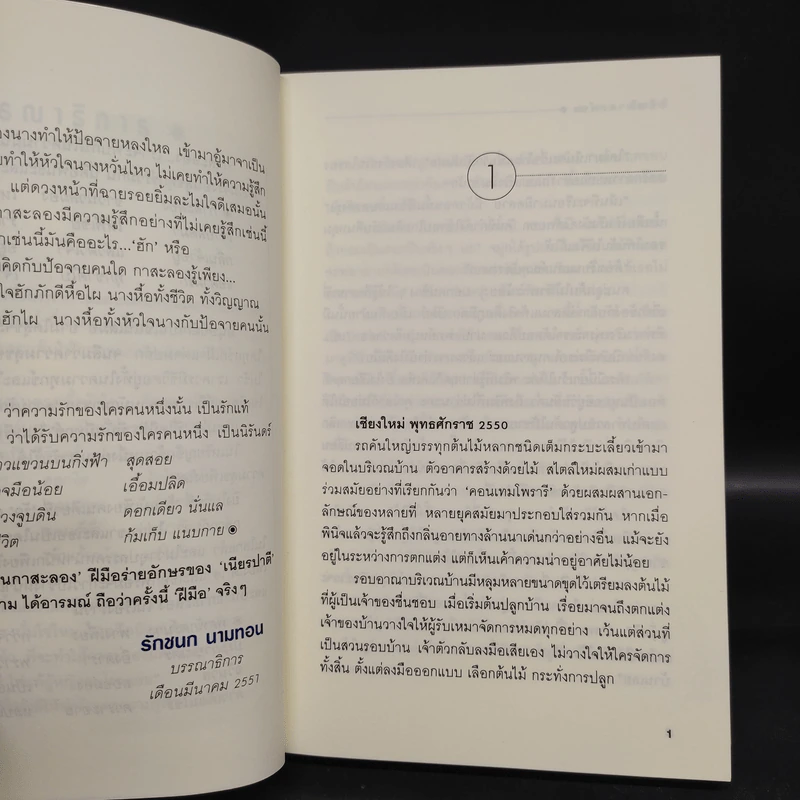 งนางทำให้ป้อจายหลงใหล เข้ามาอู้มาจาเป็น
ยทำให้หัวใจนางหวั่นไหว ไม่เคยทำให้ความรู้สึก
แต่ดวงหน้าที่ฉายรอยยิ้มละไมใจดีเสมอนั้น
กาสะลองมีความรู้สึกอย่างที่ไม่เคยรู้สึกเช่นนี้
กเช่นนี้มันคืออะไร...‘ฮัก’ หรือ
คิดกับป้อจายคนใด กาสะลองรู้เพียง...
ใจฮักภักดีหื้อไผ นางหื้อทั้งชีวิต ทั้งวิญญาณ
ฮักไผ นางหื้อทั้งหัวใจนางกับป้อจายคนนั้น
ว่าความรักของใครคนหนึ่งนั้น เป็นรักแท้
ว่าได้รับความรักของใครคนหนึ่ง เป็นนิรันดร์
าวแขวนบนกิ่งฟ้า สุดสอย
จมือน้อย เอื้อมปลิด
วงจูบดิน ดอกเดียว นั่นแล
ชีวิต ก้มเก็บ แนบกาย
นกาสะลอง’ ฝีมือร่ายอักษรของ ‘เนียรปาตี’
าม ได้อารมณ์ ถือว่าครั้งนี้ ‘ฝีมือ’ จริงๆ
รักชนก นามทอน
บรรณาธิการ
เดือนมีนาคม 2551
1
เชียงใหม่ พุทธศักราช 2550
รถคันใหญ่บรรทุกต้นไม้หลากชนิดเต็มกระบะเลี้ยวเข้ามา
จอดในบริเวณบ้าน ตัวอาคารสร้างด้วยไม้ สไตล์ใหม่ผสมเก่าแบบ
ร่วมสมัยอย่างที่เรียกกันว่า ‘คอนเทมโพรารี’ ด้วยผสมผสานเอก-
ลักษณ์ของหลายที่ หลายยุคสมัยมาประกอบใส่รวมกัน หากเมื่อ
พินิจแล้วจะรู้สึกถึงกลิ่นอายทางล้านนาเด่นกว่าอย่างอื่น แม้จะยัง
อยู่ในระหว่างการตกแต่ง แต่ก็เห็นเค้าความน่าอยู่อาศัยไม่น้อย
รอบอาณาบริเวณบ้านมีหลุมหลายขนาดขุดไว้เตรียมลงต้นไม้
ที่ผู้เป็นเจ้าของชื่นชอบ เมื่อเริ่มต้นปลูกบ้าน เรื่อยมาจนถึงตกแต่ง
เจ้าของบ้านวางใจให้ผู้รับเหมาจัดการหมดทุกอย่าง เว้นแต่ส่วนที่
เป็นสวนรอบบ้าน เจ้าตัวกลับลงมือเสียเอง ไม่วางใจให้ใครจัดการ
ทั้งสิ้น ตั้งแต่ลงมือออกแบบ เลือกต้นไม้ กระทั่งการปลูก
1